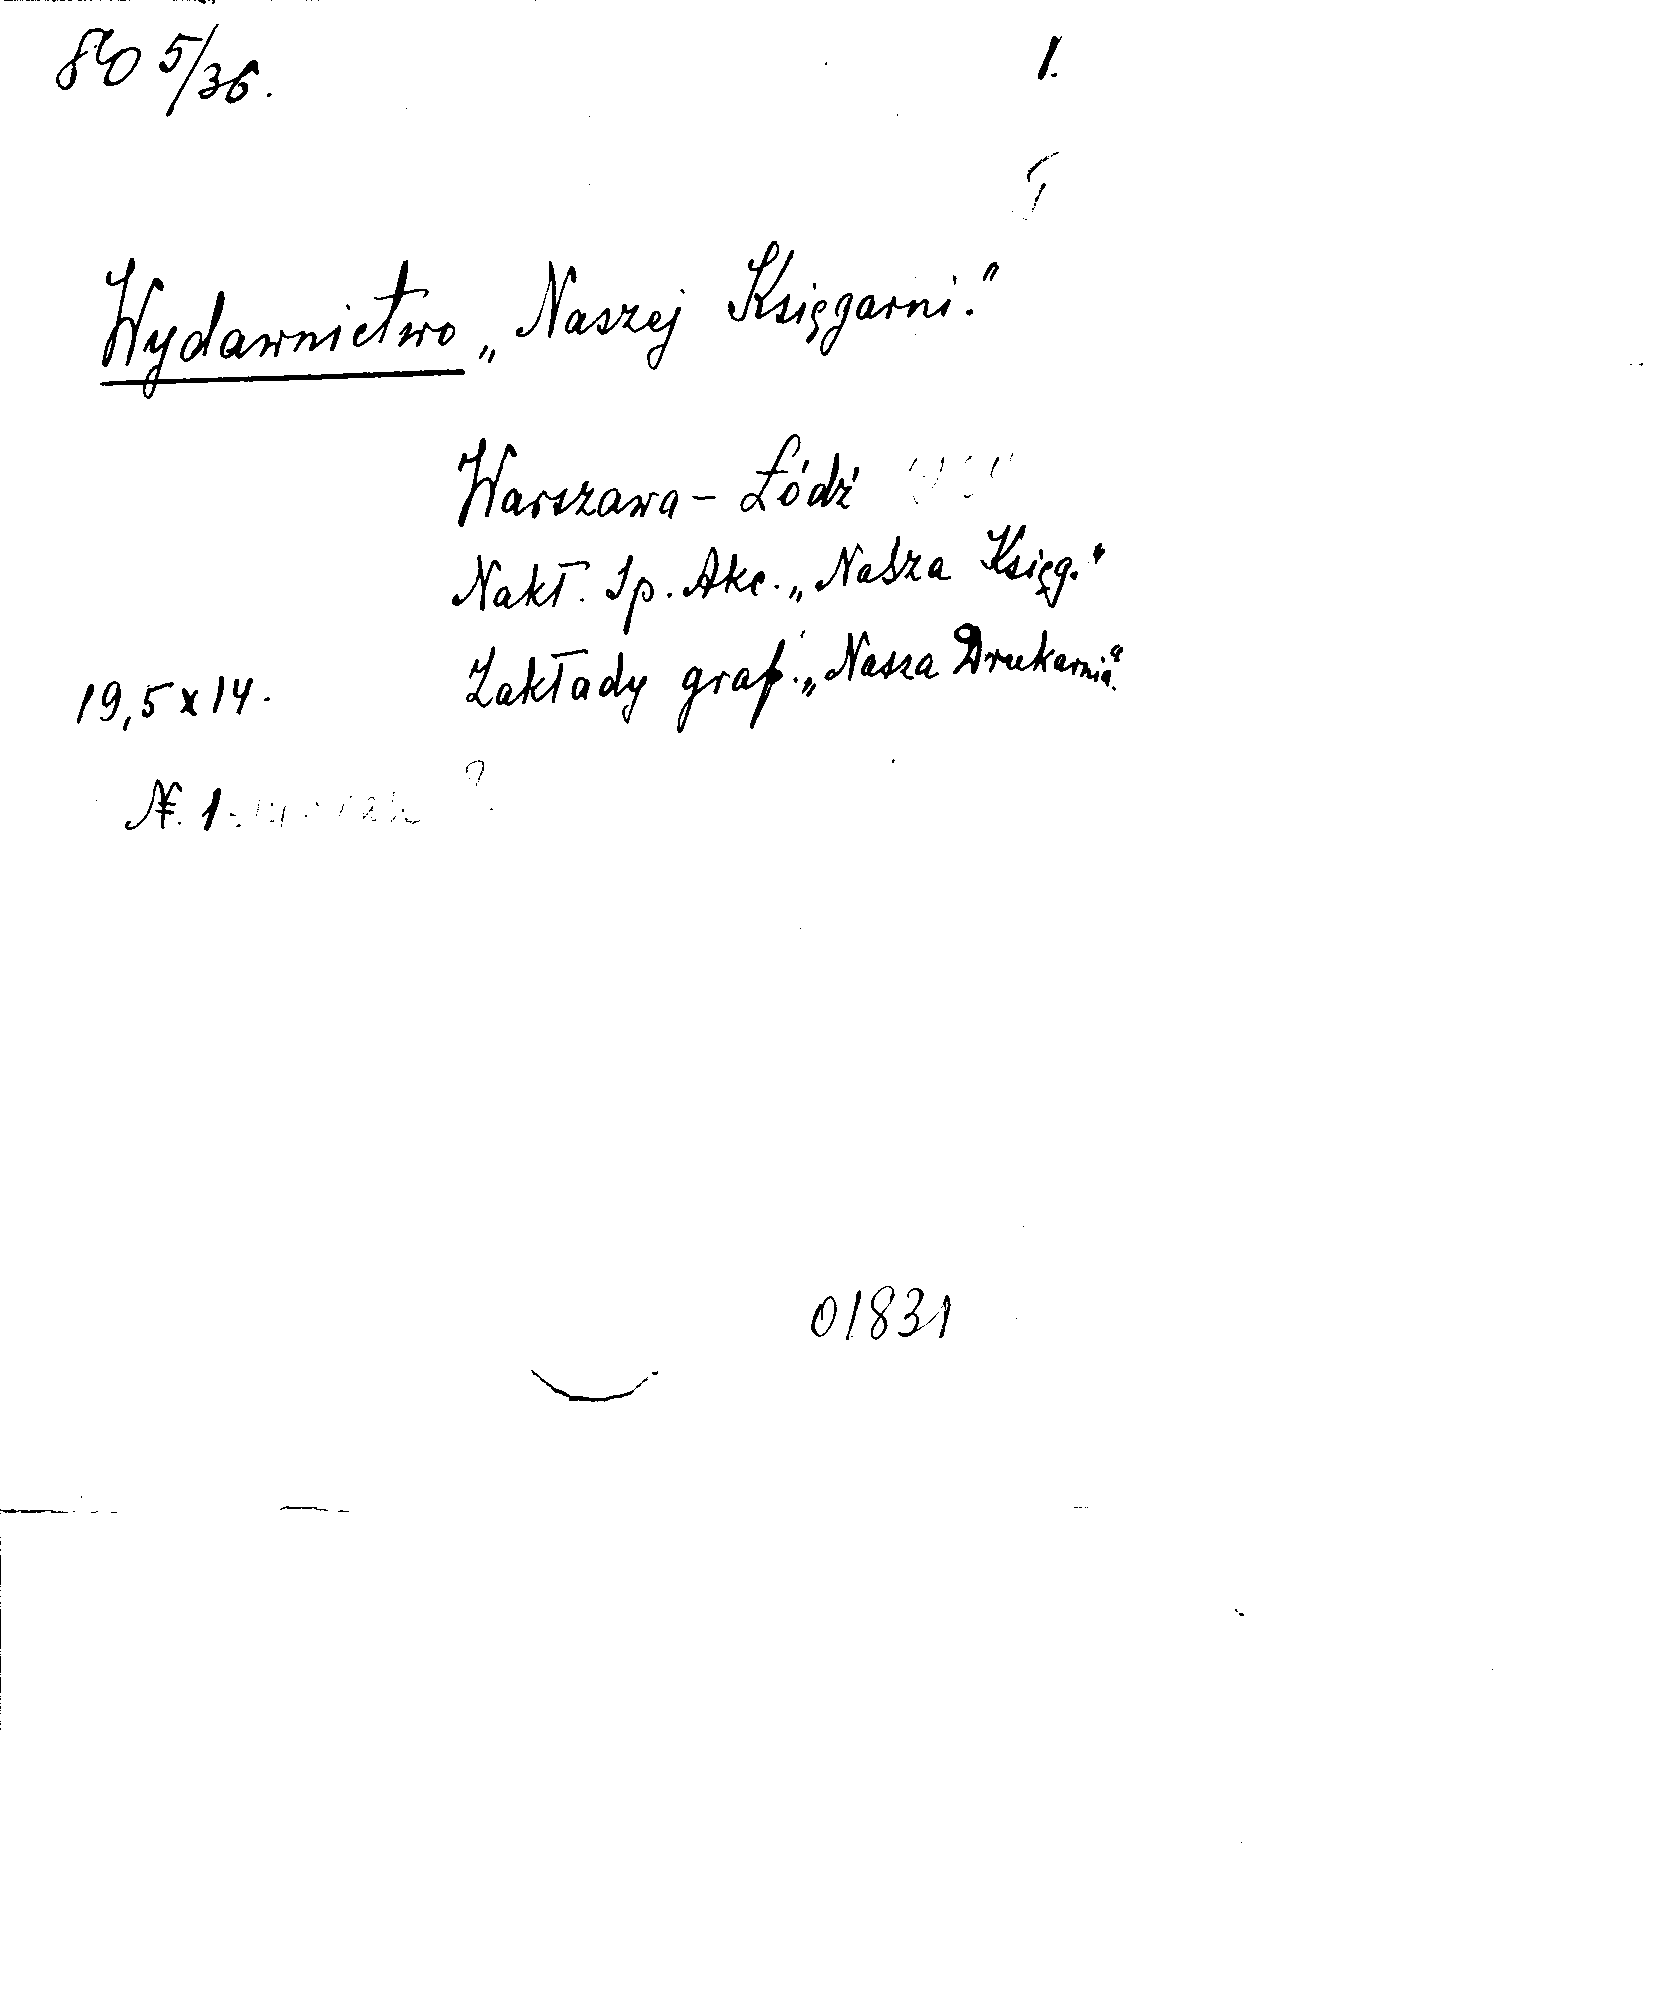 80 5/36.
1.
Wydawnictwo „Naszej Księgarni."
Warszawa – Łódź
Nakł. Sp. Akc. „Nasza Księg."
Zakłady graf. „Nasza Drukarnia".
19,5 x 14.
N. 1
01831